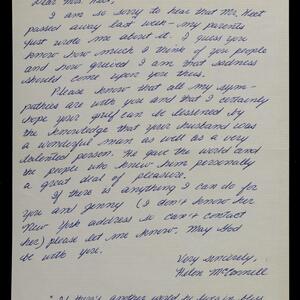 Dear Mrs.
I am so sorry to hear that Mr.
passed away last week - my parents
just wrote me about it. I guess you
know how much I think of you people
and how grieved I am that sadness
should come upon you thus.
Please know that all my sym-
pathies are with you and that I certainly
hope your grief can be lessened by
the knowledge that your husband was
a wonderful man as well as a very
talented person. He gave the world and
the people who knew him personally
a great deal of pleasure.
If there is anything I can do for
you and Jenny (I don't know her
New York address so can't contact
her) please let me know. May God
be with you.
Very sincerely,
Helen McConnell
another world to